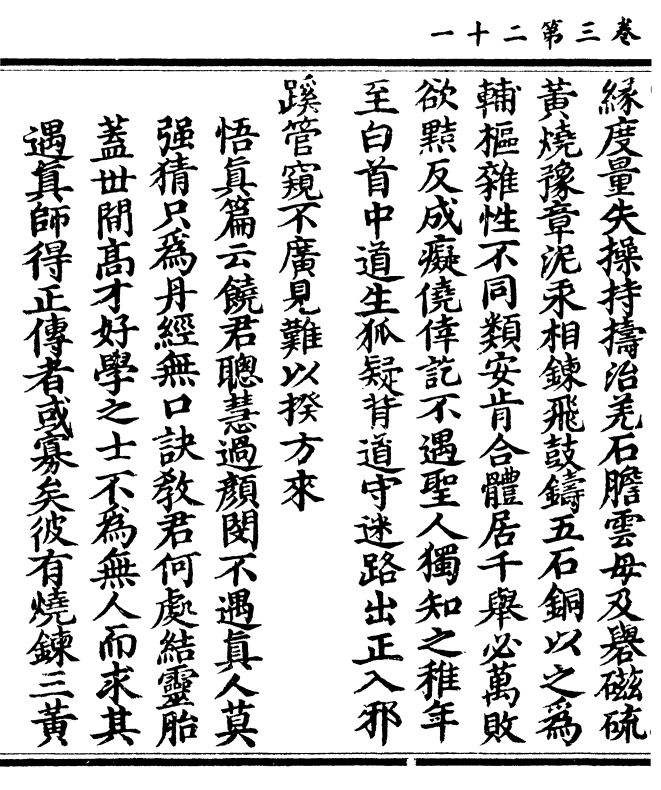 卷三第二十一
緣度量失操持擣治羌石膽雲母及礜磁硫
黃燒豫章泥汞相鍊飛鼓鑄五石銅以之爲
輔樞雜性不同類安肯合體居千舉必萬敗
欲黠反成癡僥倖訖不遇聖人獨知之稚年
至白首中道生狐疑背道守迷路出正入邪
蹊管窺不廣見難以揆方來
悟眞篇云饒君聰慧過顏閔不遇眞人莫
强猜只爲丹經無口訣敎君何處結靈胎
蓋世間高才好學之士不爲無人而求其
遇眞師得正傳者或寡矣彼有燒鍊三黃